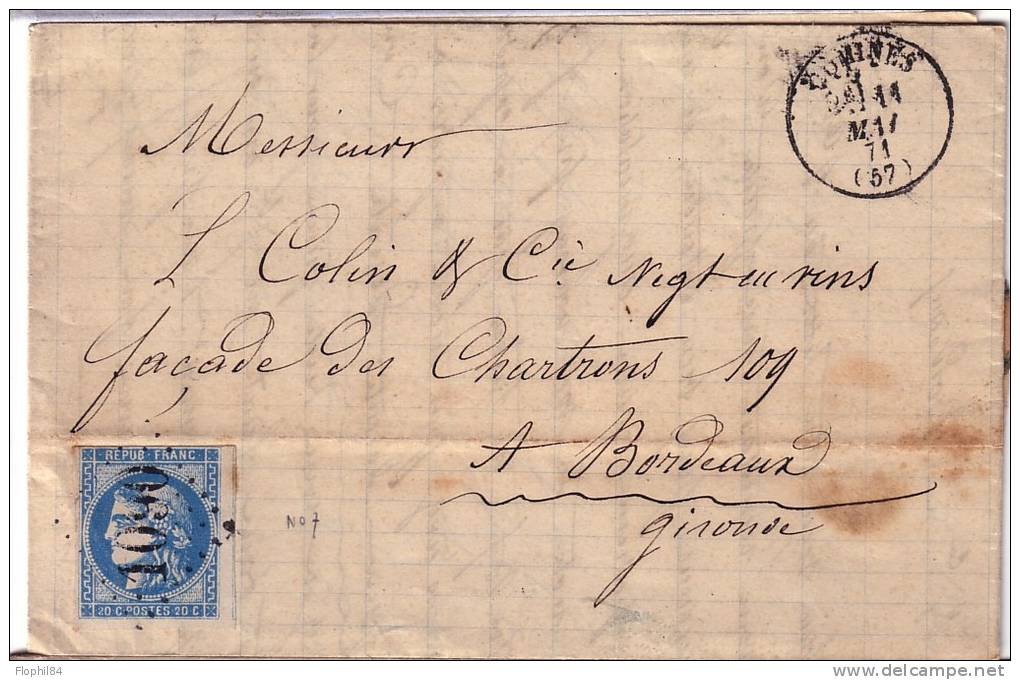 COMINES
2E
11
MAI
71
(57)
Messieurs
L Colin & Cie Negt en vins
façade des Chartrons 109
A Bordeaux
gironde
REPUB·FRANC
1090
20 C·POSTES 20 C
No 7
Flophil84
delcampe.net